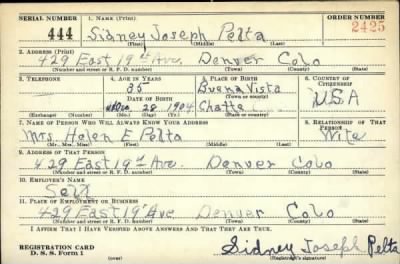 SERIAL NUMBER 1. NAME (Print) ORDER NUMBER
444 Sidney Joseph Pelta 2425
(First) (Middle) (Last)
2. ADDRESS (Print)
429 East 19th Ave. Denver Colo
(Number and street or R. F. D. number) (Town) (County) (State)
3. TELEPHONE 4. AGE IN YEARS 5. PLACE OF BIRTH 6. COUNTRY OF CITIZENSHIP
35 Buena Vista
DATE OF BIRTH (Town or county) USA
28 1904 Chaffe
(Exchange) (Number) (Mo.) (Day) (Yr.) (State or country)
7. NAME OF PERSON WHO WILL ALWAYS KNOW YOUR ADDRESS 8. RELATIONSHIP OF THAT PERSON
Mrs. Helen E Pelta Wife
(Mr., Mrs., Miss) (First) (Middle) (Last)
9. ADDRESS OF THAT PERSON
429 East 19th Ave. Denver Colo
(Number and street or R. F. D. number) (Town) (County) (State)
10. EMPLOYER'S NAME
Self
11. PLACE OF EMPLOYMENT OR BUSINESS
429 East 19th Ave Denver Colo
(Number and street or R. F. D. number) (Town) (County) (State)
I AFFIRM THAT I HAVE VERIFIED ABOVE ANSWERS AND THAT THEY ARE TRUE.
REGISTRATION CARD
D. S. S. Form 1
Sidney Joseph Pelta
(Registrant's signature)